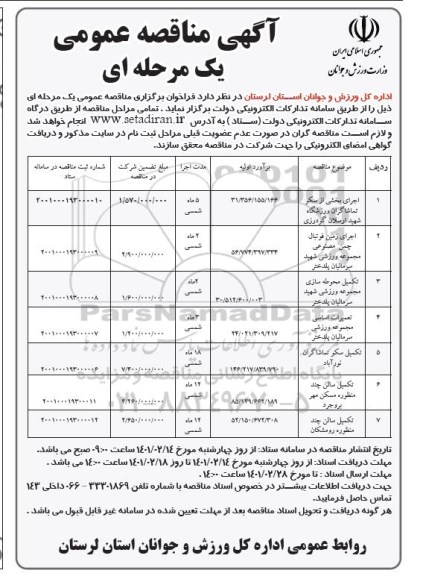 آگهی مناقصه عمومی
یک مرحله ای
جمهوری اسلامی ایران
وزارت ورزش و جوانان
اداره کل ورزش و جوانان استان لرستان در نظر دارد فراخوان برگزاری مناقصه عمومی یک مرحله ای
ذیل را از طریق سامانه تدارکات الکترونیکی دولت برگزار نماید . تمامی مراحل مناقصه از طریق درگاه
سامانه تدارکات الکترونیکی دولت (ستاد) به آدرس www.setadiran.ir انجام خواهد شد
و لازم است مناقصه گران در صورت عدم عضویت قبلی مراحل ثبت نام در سایت مذکور و دریافت
گواهی امضای الکترونیکی را جهت شرکت در مناقصه محقق سازند.
ردیف موضوع مناقصه برآورد اولیه مدت اجرا مبلغ تضمین شرکت در مناقصه شماره ثبت مناقصه در سامانه ستاد
۱ اجرای بخشی از سکو تماشاگران ورزشگاه شهید ارسلان گودرزی ۳۱/۳۵۶/۱۵۵/۱۶۶ ۵ ماه شمسی ۱/۵۷۰/۰۰۰/۰۰۰ ۲۰۰۱۰۰۰۱۹۳۰۰۰۰۱۰
۲ اجرای زمین فوتبال چمن مصنوعی مجموعه ورزشی شهید سرمالیان پلدختر ۵۶/۷۷۴/۳۹۷/۳۳۴ ۴ ماه شمسی ۲/۹۰۰/۰۰۰/۰۰۰ ۲۰۰۱۰۰۰۱۹۳۰۰۰۰۰۹
۳ تکمیل محوطه سازی مجموعه ورزشی شهید سرمالیان پلدختر ۳۰/۵۱۲/۶۰۰/۰۰۳ ماه شمسی ۱/۶۰۰/۰۰۰/۰۰۰ ۲۰۰۱۰۰۰۱۹۳۰۰۰۰۰۸
۴ تعمیرات اساسی مجموعه ورزشی سرمالیان پلدختر ۲۴/۰۲۱/۳۰۹/۲۱۷ ۳ ماه شمسی ۱/۲۰۰/۰۰۰/۰۰۰ ۲۰۰۱۰۰۰۱۹۳۰۰۰۰۰۷
۵ تکمیل سکو تماشاگران نورآباد ۱۴۶/۲۱۷/۸۳۹/۷۹۰ ۱۸ ماه شمسی ۷/۴۰۰/۰۰۰/۰۰۰ ۲۰۰۱۰۰۰۱۹۳۰۰۰۰۰۶
۶ تکمیل سالن چند منظوره مسکن مهر بروجرد ۸۵/۱۴۹/۶۶۲/۱۸۹ ۱۲ ماه شمسی ۴/۲۶۰/۰۰۰/۰۰۰ ۲۰۰۱۰۰۰۱۹۳۰۰۰۰۱۱
۷ تکمیل سالن چند منظوره رومشکان ۵۲/۱۵۰/۶۷۲/۳۰۸ ۱۲ ماه شمسی ۲/۶۵۰/۰۰۰/۰۰۰ ۲۰۰۱۰۰۰۱۹۳۰۰۰۰۱۲
تاریخ انتشار مناقصه در سامانه ستاد: از روز چهارشنبه مورخ ۱۴۰۱/۰۲/۱۴ ساعت ۰۹:۰۰ صبح می باشد.
مهلت دریافت اسناد: از روز چهارشنبه مورخ ۱۴۰۱/۰۲/۱۴ تا روز ۱۴۰۱/۰۲/۱۸ ساعت ۱۴:۰۰ می باشد .
مهلت ارسال اسناد : تا مورخ ۱۴۰۱/۰۲/۲۸ ساعت ۱۴:۰۰ .
جهت دریافت اطلاعات بیشتر در خصوص اسناد مناقصه با شماره تلفن ۳۳۳۰۱۸۶۹ - ۰۶۶ داخلی ۱۴۳
تماس حاصل فرمایید.
هر گونه دریافت و تحویل اسناد مناقصه بعد از مهلت تعیین شده در سامانه غیر قابل قبول می باشد .
روابط عمومی اداره کل ورزش و جوانان استان لرستان
ParsNamadData
پایگاه اطلاع رسانی مناقصه و مزایده
۰۲۱-۸۸۳۴۹۶۷۰-۵